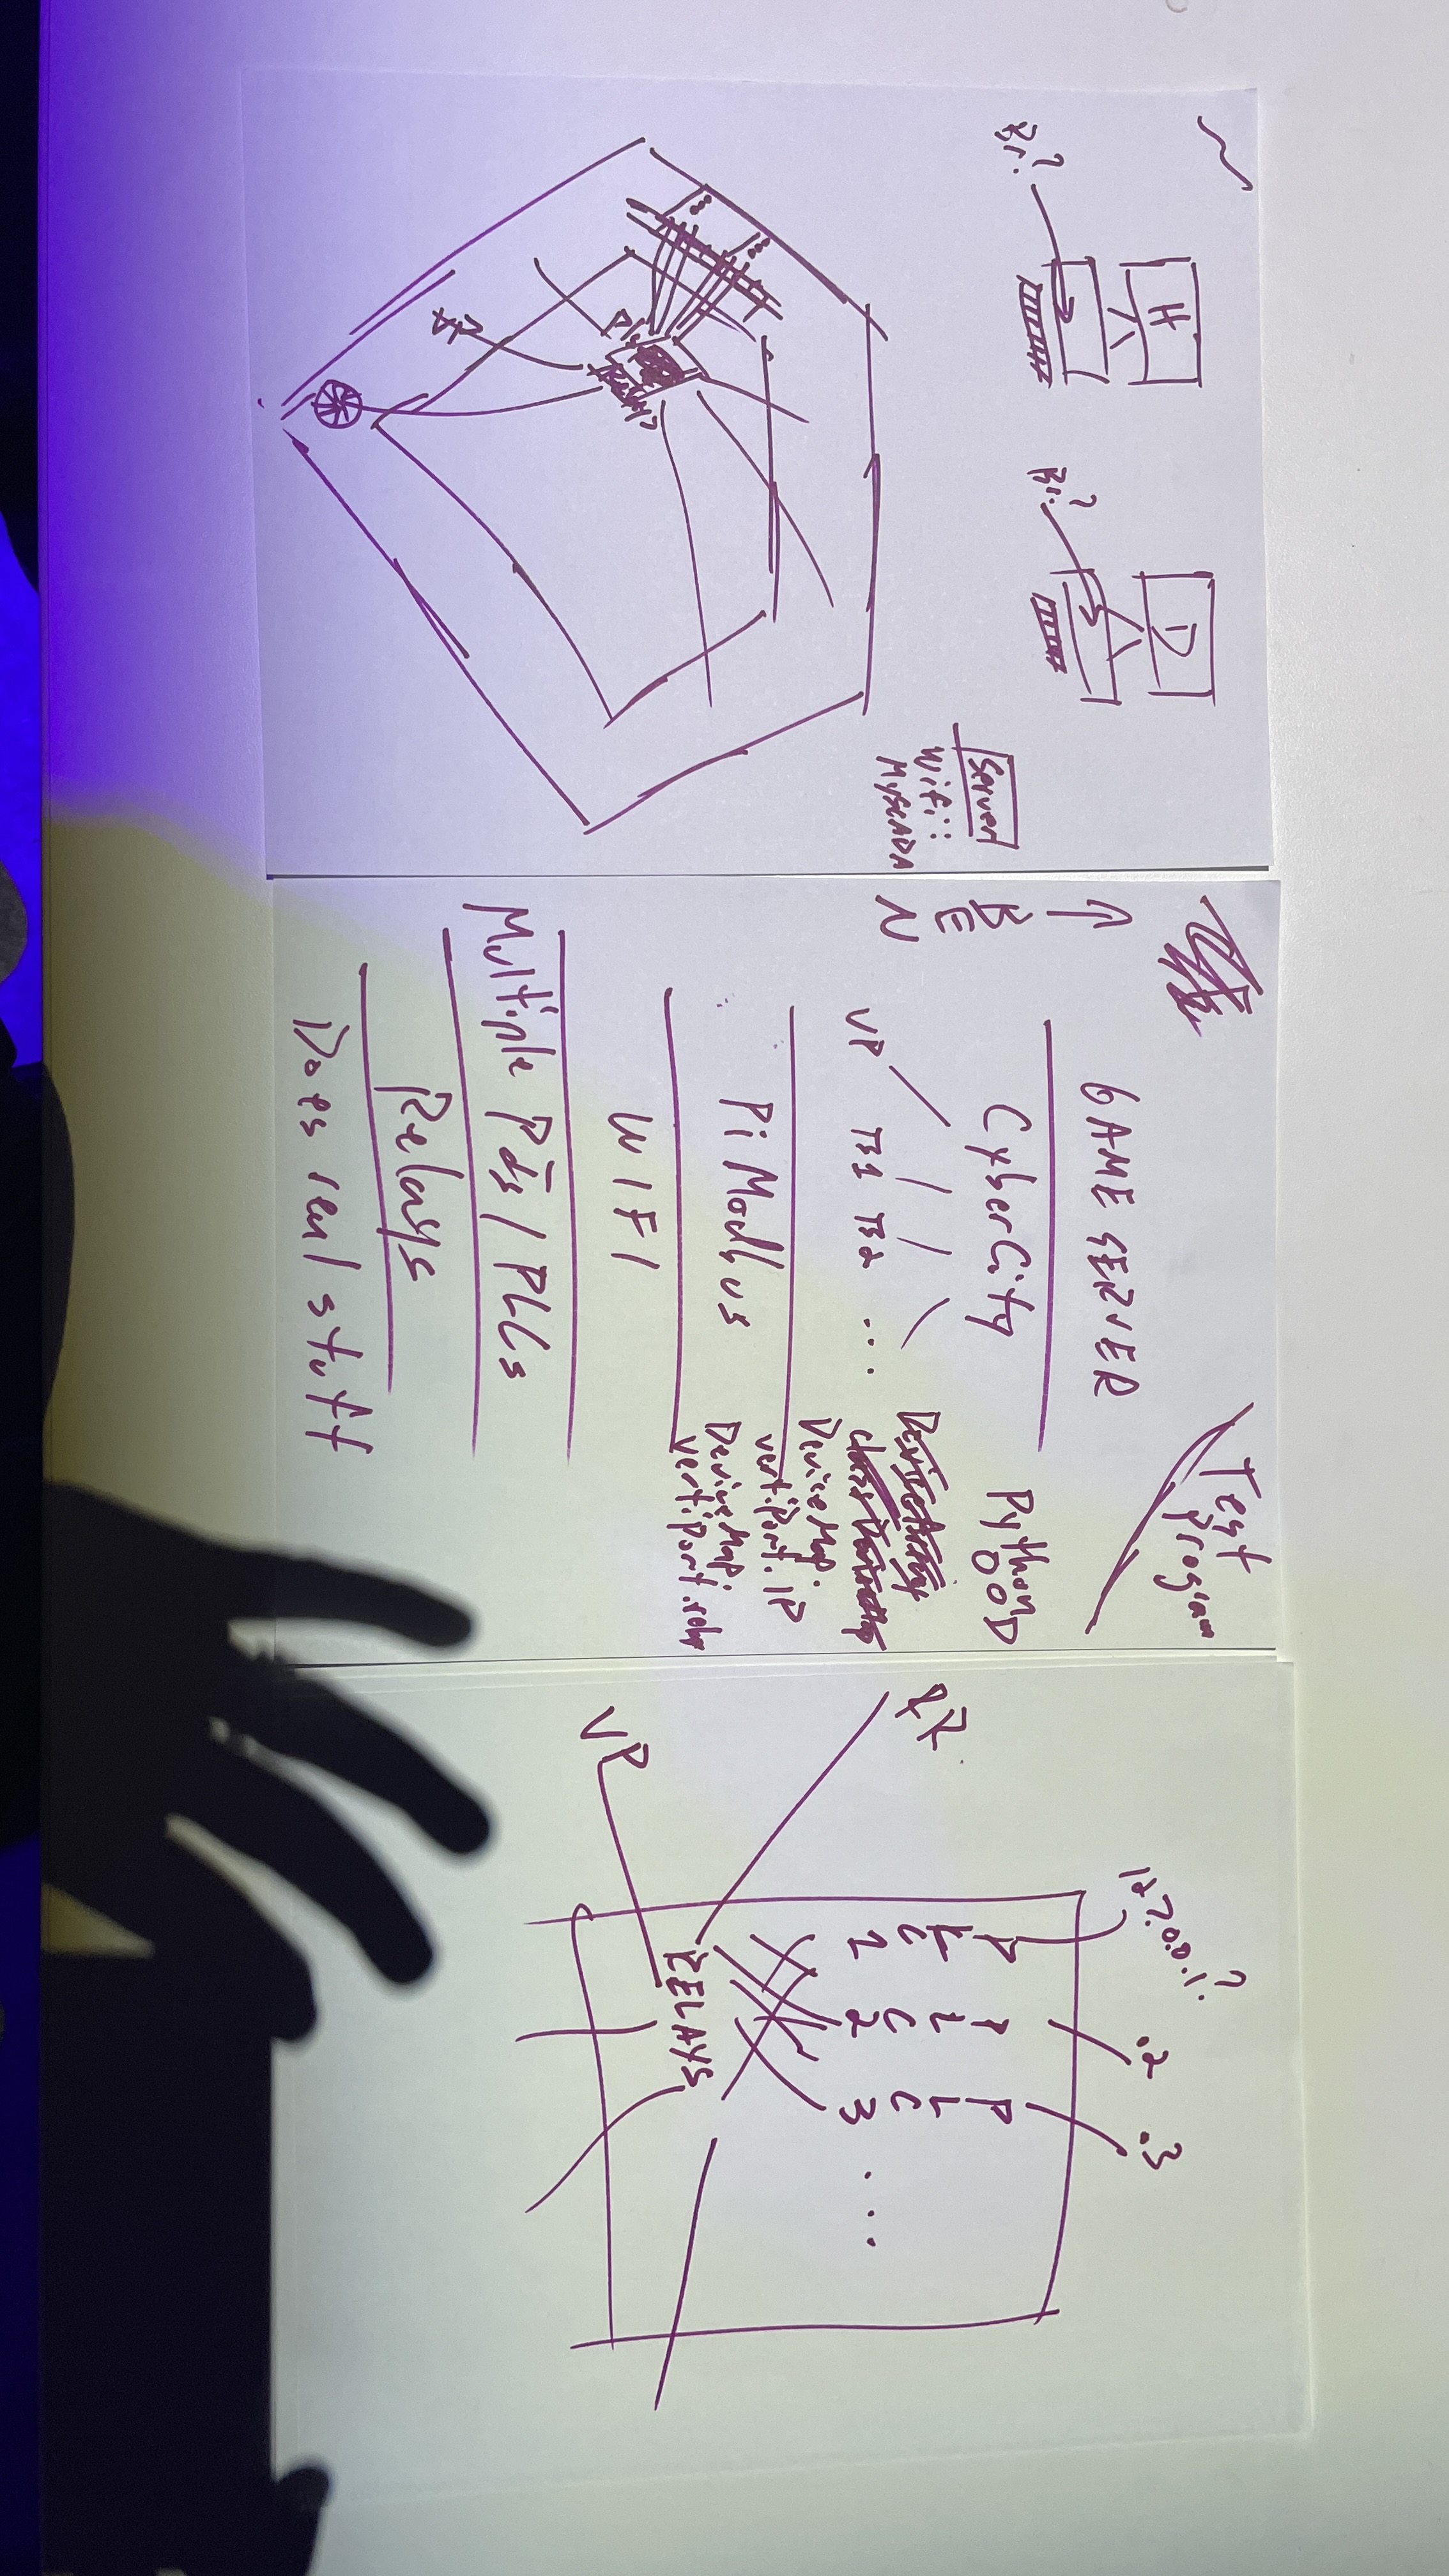 H
Pi?
D
Pi?
Server
Wifi?
MySCADA
Pi
Relays?
↑
B
E
N
Test
Program
GAME SERVER
CyberCity
Python
OOD
VP
...
DeviceMap.
vertiport.IP
DeviceMap.
vertiport.relay
Pi Modbus
WIFI
Multiple Pis/PLCs
Relays
Does real stuff
IP?
0.0.1?
.2
.3
PLC 1
PLC 2
PLC 3
...
RELAYS
VP